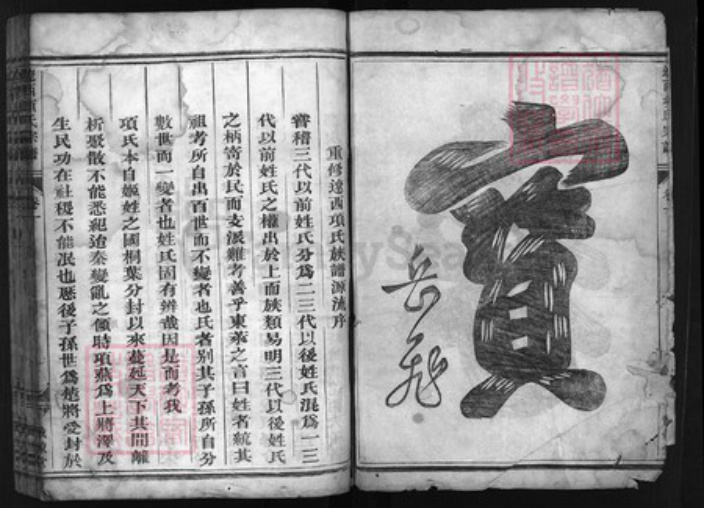 寶
岳飛
重修遼西項氏族譜源流序
嘗稽三代以前姓氏分為二三代以後姓氏混為一三
代以前姓氏之權出於上而族類易明三代以後姓氏
之柄寄於民而支派難考善乎東萊之言曰姓者統其
祖考所自出百世而不變者也氏者別其子孫所自分
數世而一變者也姓氏固有辨哉因是而考我
項氏本自姬姓之國桐葉分封以來蔓延天下其間離
析聚散不能悉紀迨秦變亂之傾時項燕為上將澤及
生民功在社稷不能泯也厥後子孫世為楚將受封於